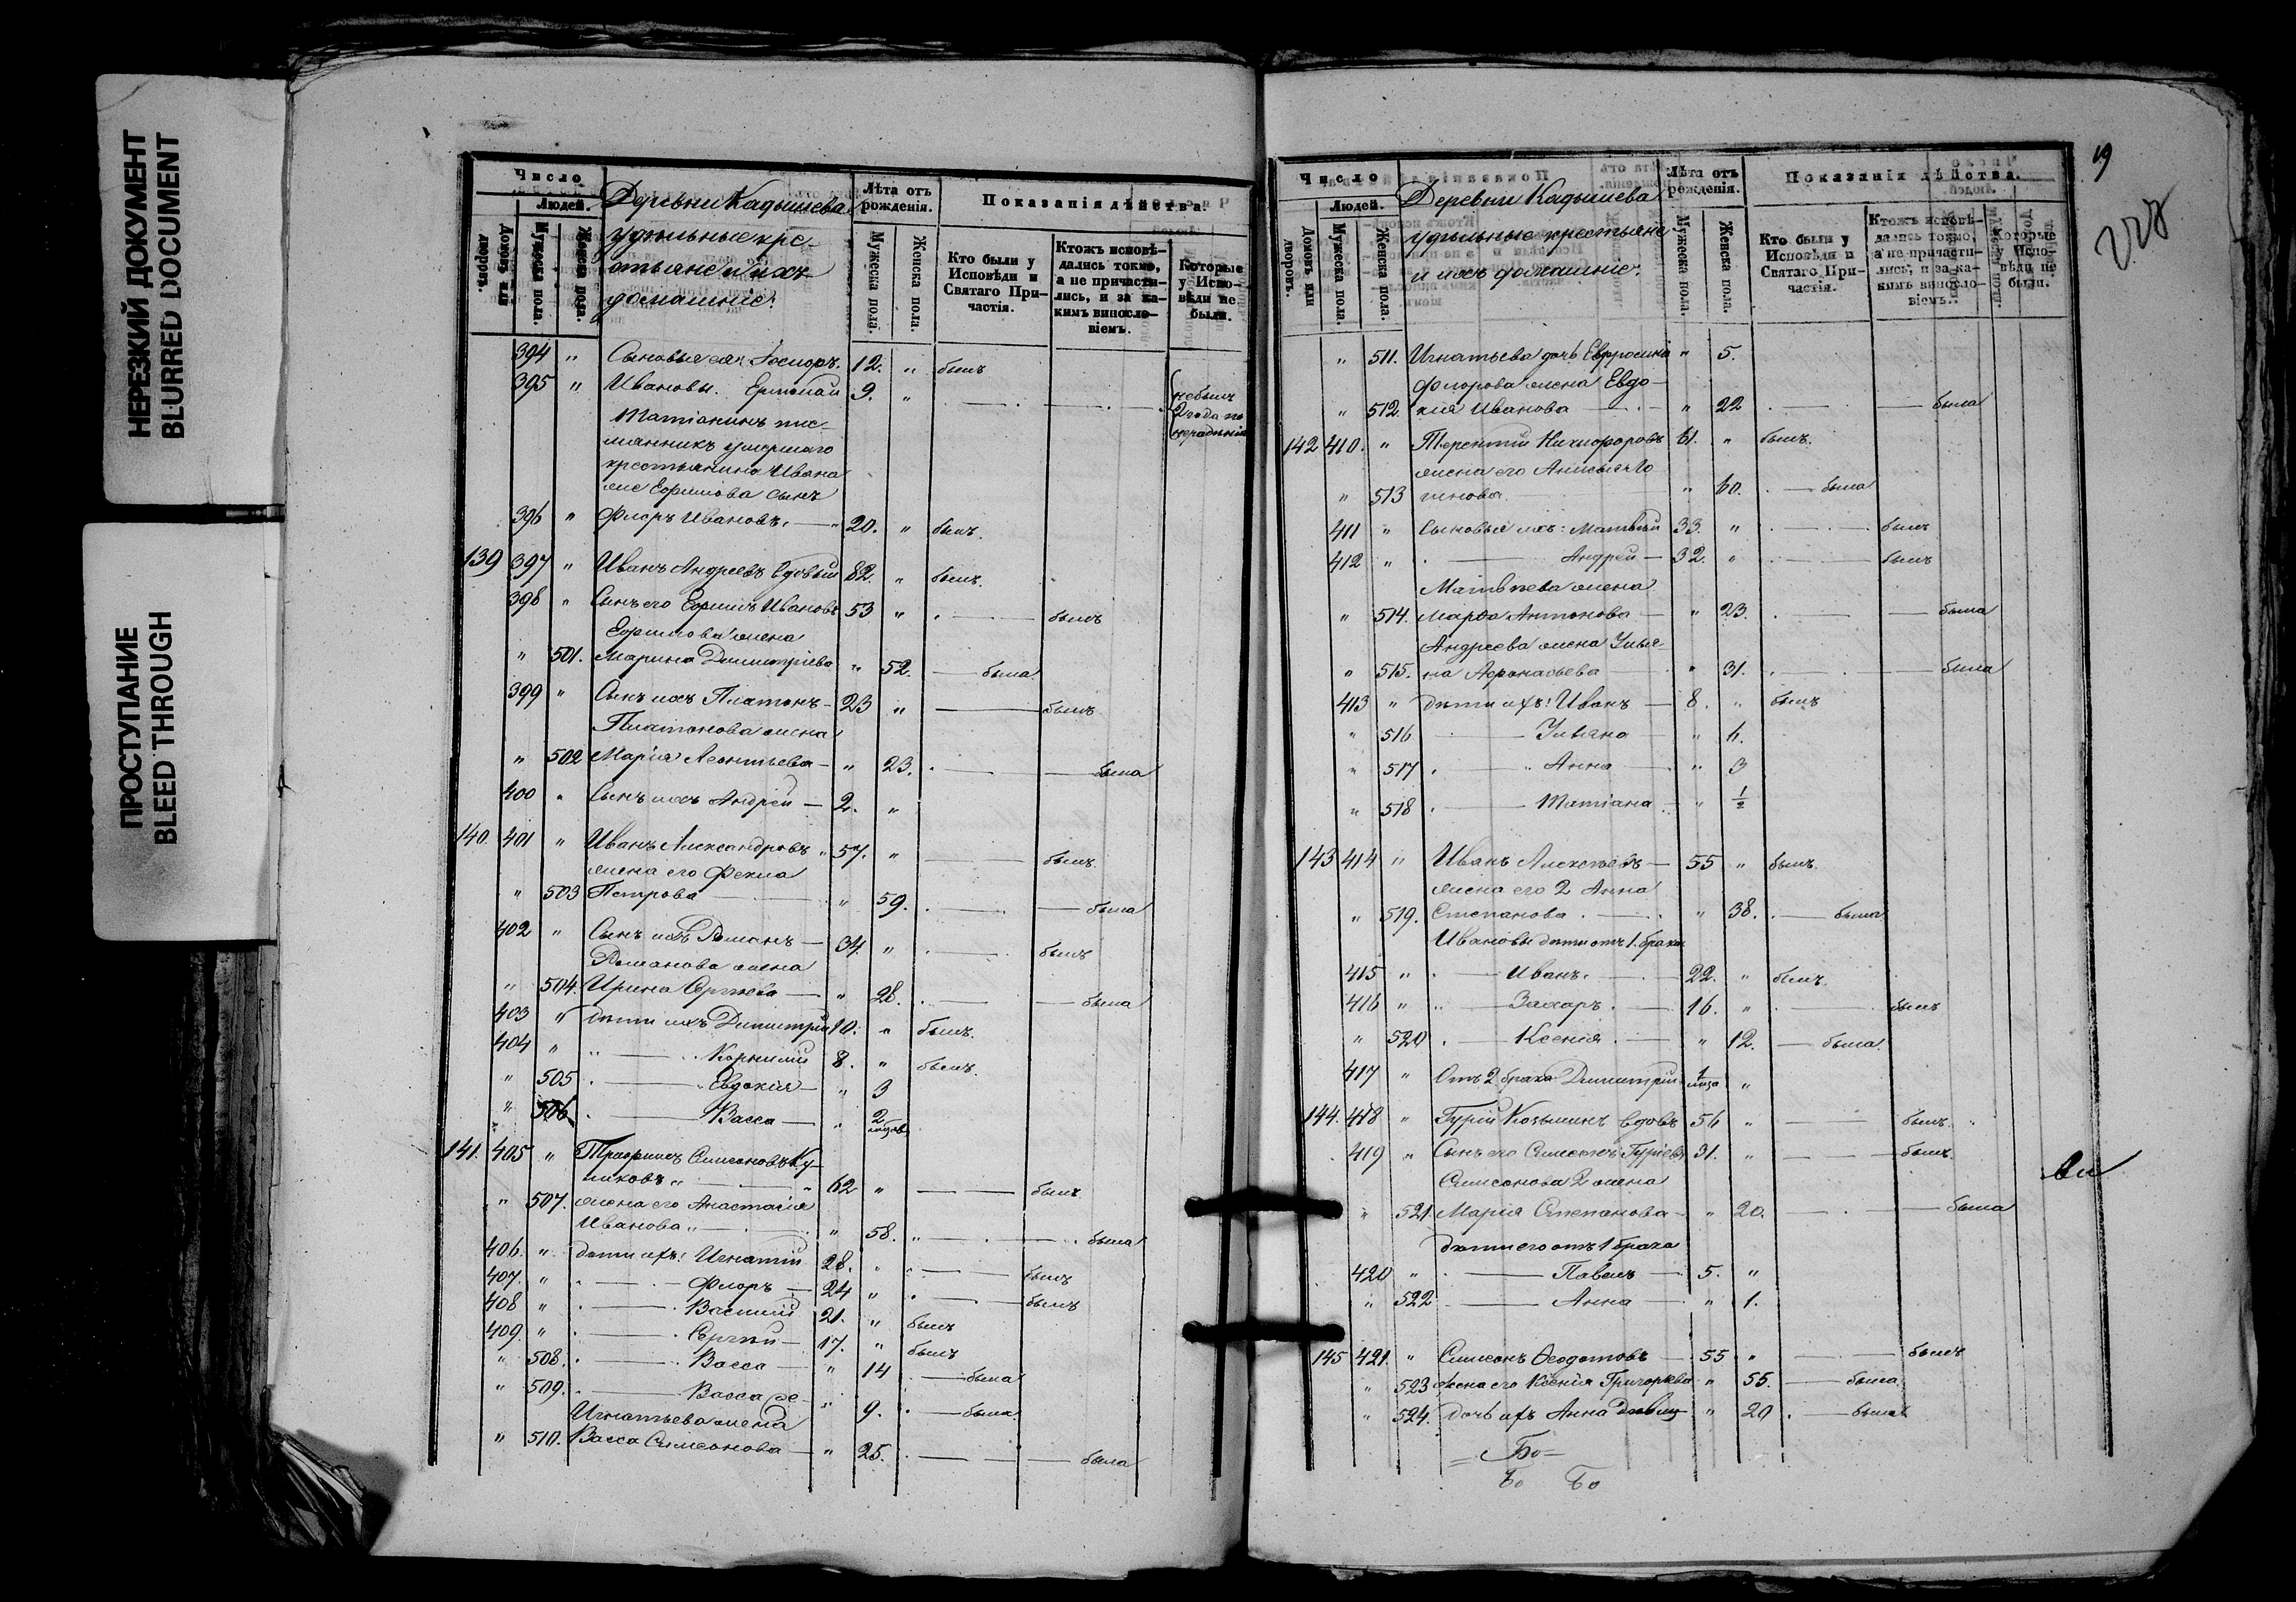 НЕРЕЗКИЙ ДОКУМЕНТ
BLURRED DOCUMENT
ПРОСТУПАНИЕ
BLEED THROUGH
Число
Людей.
Домовъ или дворовъ.
Мужеска пола.
Женска пола.
Деревни Кадышева
удѣльные кре-
стьяне и ихъ
домашніе:
Лѣта отъ рожденія.
Мужеска пола.
Женска пола.
Показанія дѣйства.
Кто были у Исповѣди и Святаго При-частія.
Ктожъ исповѣ-дались токмо, а не причасти-лись, и за ка-кимъ виносло-віемъ.
Которые у Испо-вѣди не были.
394 " Сыновья ея: 12. " былъ
395 " Ивановы. Ермолай 9. " небылъ 2 года по нерадѣнію
Татіанинъ пле-
мянникъ умершаго
крестьянина Ивана
Ефимова сынъ
396 " Флоръ Ивановъ. 20. " былъ.
139 397 " Иванъ Андреевъ вдовый 82. " былъ.
398 " Сынъ его Ефимъ Ивановъ 53 " былъ
Ефимова жена
" 501. Марина Димитріева " 52. была.
399 " Сынъ ихъ Платонъ 23 " былъ
Платонова жена
" 502 Марія Леонтьева " 23. была
400 " Сынъ ихъ Андрей 2. "
140. 401 " Иванъ Александровъ 57. " былъ.
жена его Фекла
" 503 Петрова " 59. была
402 " Сынъ ихъ Романъ 34. " былъ
Романова жена
" 504. Ирина Сергѣева " 28. была
403 " дѣти ихъ Димитрій 10. " былъ.
404 " Корнилій 8. " былъ.
" 505 Евдокія " 3
" 506 Васса " 2
141. 405 " Трофимъ Симеоновъ Ку-
ликовъ 62 " былъ
" 507. жена его Анастасія
Иванова " 58. была
406. " дѣти ихъ: Игнатій 28. " былъ
407. " Флоръ 24 " былъ
408 " Василій 21. " былъ
409. " Сергѣй 17. " былъ
" 508. Васса " 14 была
" 509. Васса " 9. была.
Игнатьева жена
" 510. Васса Симеонова " 25. была
19
Число
Людей.
Домовъ или дворовъ.
Мужеска пола.
Женска пола.
Деревни Кадышева
удѣльные крестьяне
и ихъ домашніе:
Лѣта отъ рожденія.
Мужеска пола.
Женска пола.
Показанія дѣйства.
Кто были у Исповѣди и Святаго При-частія.
Ктожъ исповѣ-дались токмо, а не причасти-лись, и за ка-кимъ виносло-віемъ.
Которые у Испо-вѣди не были.
" 511. Игнатьева дочь Евфросинія " 5.
Флорова жена Евдо-
" 512. кія Иванова " 22 была
142 410. " Терентій Никифоровъ 61. " былъ.
жена его Анисья Ло
" 513 гинова. " 60. была
411 " Сыновья ихъ: Матвѣй 33. " былъ
412 " Андрей 32. " былъ
Матвѣева жена
" 514. Марфа Антонова " 23. была
Андреева жена Улья-
" 515. на Афонасьева " 31. была
413 " дѣти ихъ: Иванъ 8. " былъ
" 516 Ульяна " 6.
" 517 Анна " 3
" 518 Татіана " 1/2
143 414 " Иванъ Алексѣевъ 55 " былъ.
жена его 2 Анна
" 519. Степанова " 38. была
Ивановы дѣти отъ 1. брака
415 " Иванъ. 22. " былъ.
416 " Захаръ. 16. " былъ
" 520 Ксенія " 12. была.
417 " Отъ 2 брака Димитрій 1 "
144. 418 " Гурій Козьминъ вдовъ 56 " былъ.
419 " Сынъ его Симеонъ Гурьевъ 31. " былъ.
Симеонова 2 жена
" 521. Марія Степанова " 20. была
дѣти его отъ 1 брака
420 " Павелъ 5. "
" 522 Анна " 1.
145 421. " Симеонъ Ѳеодотовъ 55 " былъ
" 523 жена его Ксенія Григорьева " 55. была.
" 524. дочь ихъ Анна дѣвица " 20 была